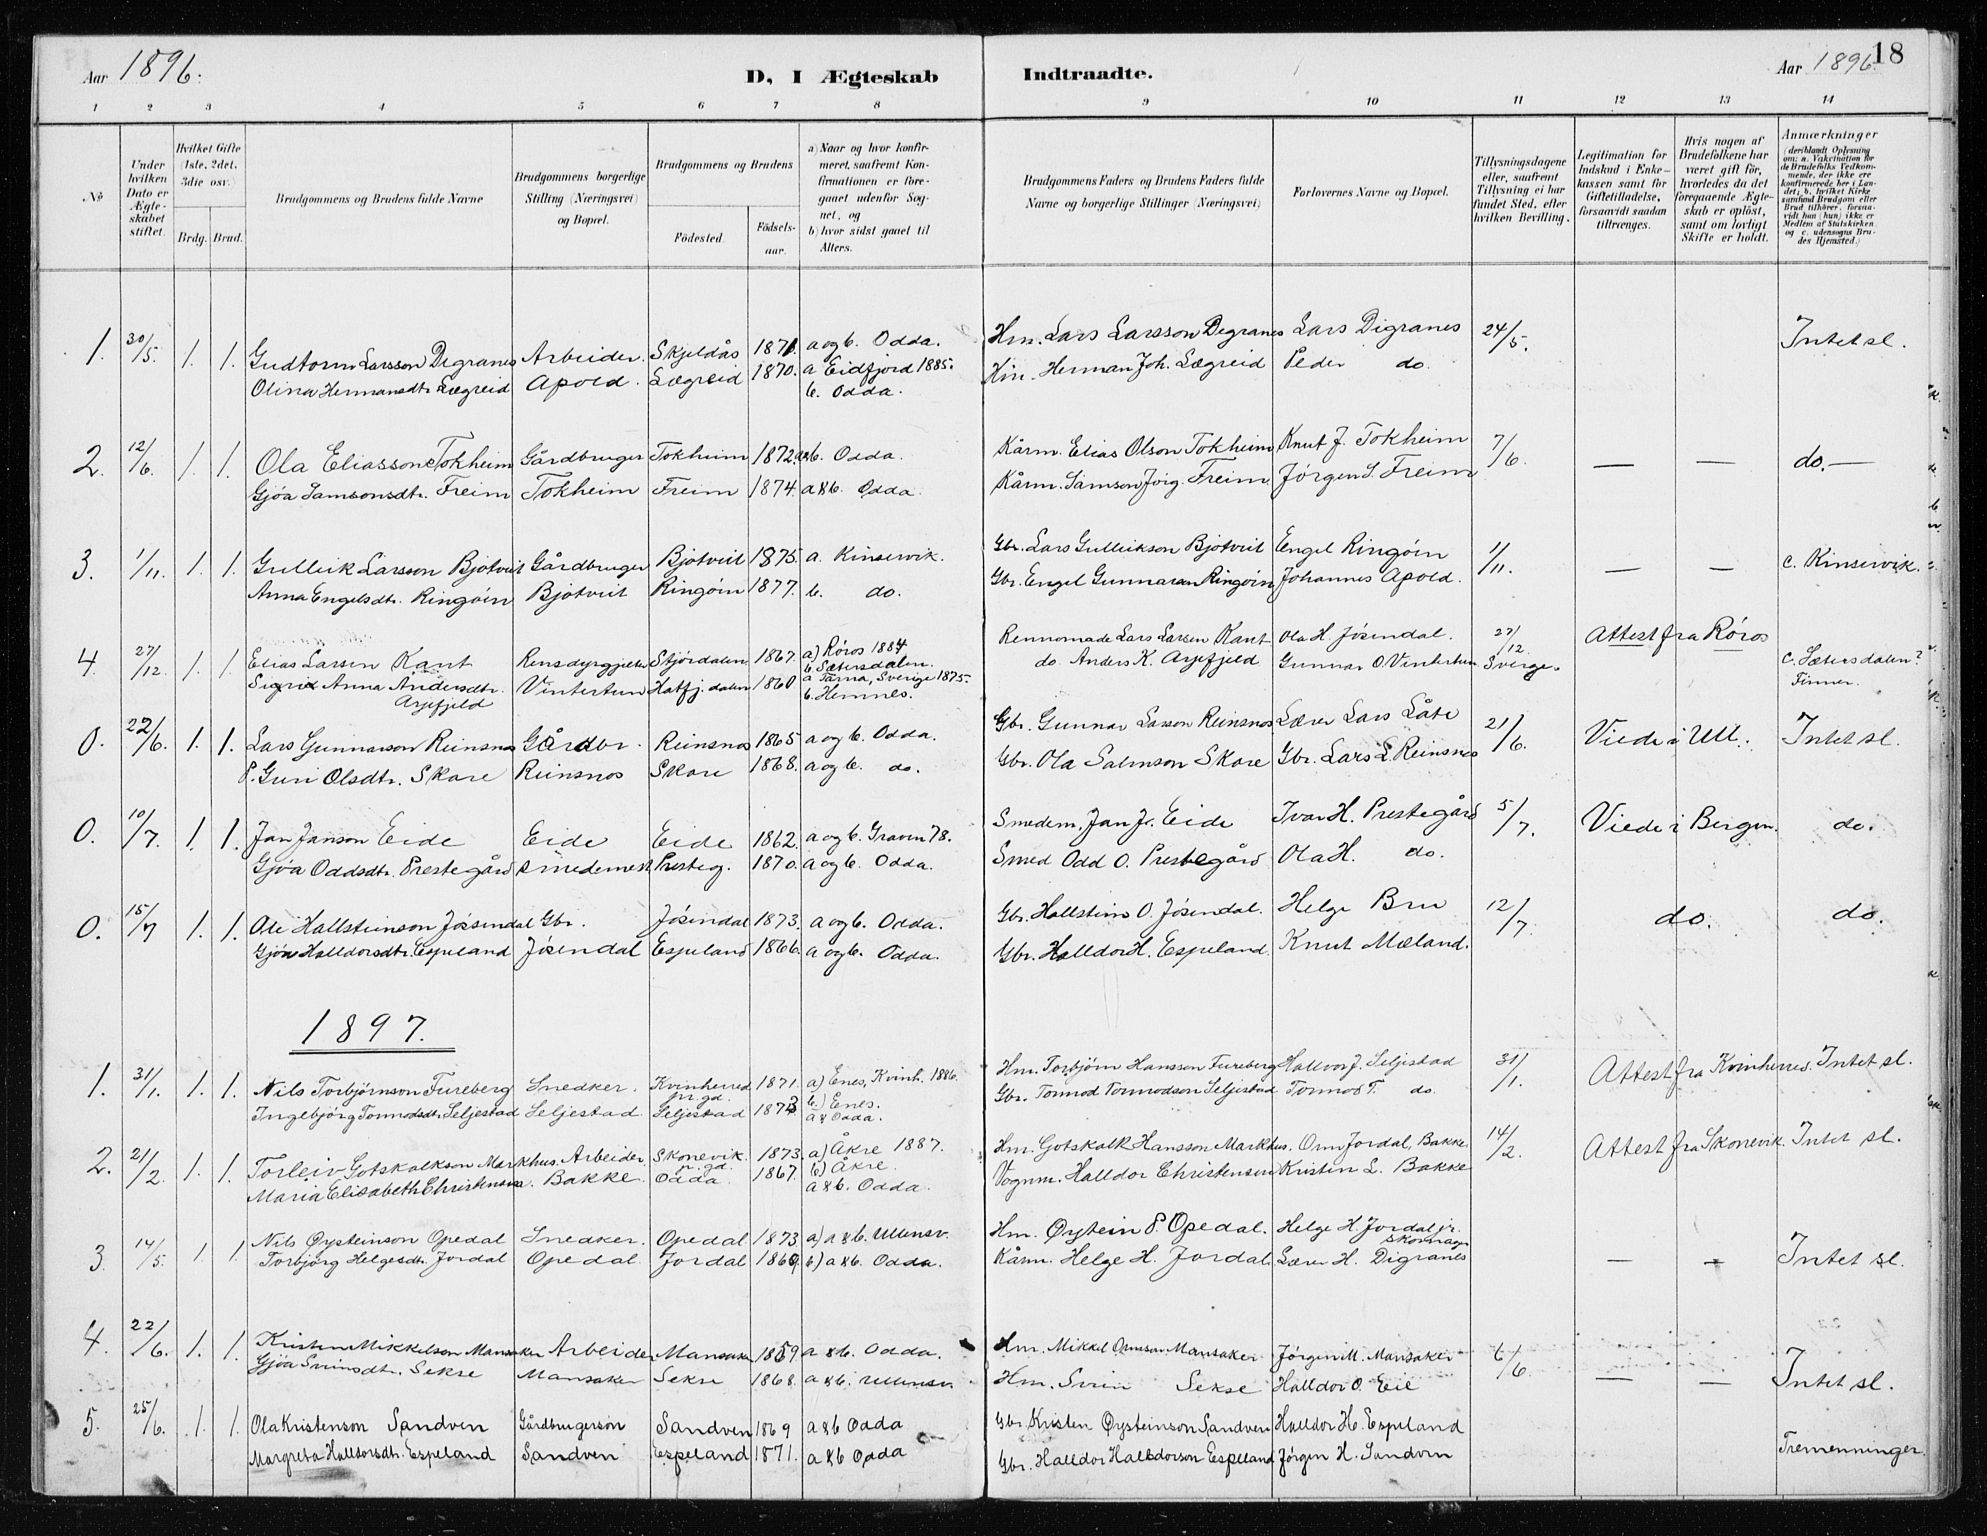 18
Aar 1896.
D, I Ægteskab
Indtraadte.
Aar 1896.
1 2 3 4 5 6 7 8 9 10 11 12 13 14
No
Under hvilken Dato er Ægteskabet stiftet.
Hvilket Gifte (1ste, 2det, 3die osv.)
Brdg. Brud.
Brudgommens og Brudens fulde Navne
Brudgommens borgerlige Stilling (Næringsvei) og Bopæl.
Brudgommens og Brudens
Fødested.
Fødsels-aar.
a) Naar og hvor konfirmeret, saafremt Konfirmationen er foregaaet udenfor Sognet, og
b) hvor sidst gaaet til Alters.
Brudgommens Faders og Brudens Faders fulde Navne og borgerlige Stillinger (Næringsvei)
Forlovernes Navne og Bopæl.
Tillysningsdagene eller, saafremt Tillysning ei har fundet Sted, efter hvilken Bevilling.
Legitimation for Indskud i Enkekassen samt for Giftetilladelse, forsaavidt saadan tiltrænges.
Hvis nogen af Brudefolkene har været gift før, hvorledes da det foregaaende Ægteskab er opløst, samt om lovligt Skifte er holdt.
Anmærkninger
(deriblandt Oplysning om: a. Vakcination for de Brudefolks Vedkommende, der ikke ere konfirmerede her i Landet; b. hvilket Kirkesamfund Brudgom eller Brud tilhører, forsaavidt han (hun) ikke er Medlem af Statskirken, og c. udensogns Brudes Hjemsted.)
1. 30/5. 1. 1. Gudtorm Larsson Degranes Arbeider. Skjeldås 1871. a og b. Odda. Hm. Lars Larsson Degranes Lars Digranes 24/5. Intet sl.
Olina Hermansdtr. Lægreid Apold. Lægreid 1870. a Eidfjord 1885. Hm. Herman Joh. Lægreid Peder do.
b. Odda.
2. 12/6. 1. 1. Ola Eliasson Tokheim Gårdbruger Tokheim 1872. a&b. Odda. Kårm. Elias Olson Tokheim Knut J. Tokheim 7/6. — — do. —
Gjøa Samsonsdtr. Freim Tokheim Freim 1874. a&b. Odda. Kårm. Samson Jørg. Freim Jørgen S. Freim
3. 1/11. 1. 1. Gulleik Larsson Bjotveit Gårdbruger Bjotveit 1875. a. Kinservik. Gbr. Lars Gulleikson Bjotveit Engel Ringøin 1/11. — — c. Kinservik.
Anna Engelsdtr. Ringøin Bjotveit Ringøin 1877. b. do. Gbr. Engel Gunnarsn Ringøin Johannes Apold.
4. 27/12. 1. 1. Elias Larsen Kant Rensdyrgjæter Stjørdalen 1867. a) Røros 1884 Rennomade Lars Larsen Kant Ola H. Jøsendal. 27/12. Attest fra Røros
b. Sætersdalen.
Sigrid Anna Andersdtr. Vintertun Hatfj. dalen 1860 a Tärna, Sverige 1875. do. Anders K. Arjefjeld Gunnar O. Vintertun Sverige c. Sætersdalen?
Arjefjeld b. Hemnes. Finner.
0. 22/6. 1. 1. Lars Gunnarson Reinsnos Gårdbr. Reinsnos 1865 a og b. Odda. Gbr. Gunnar Larsson Reinsnos Lærer Lars Låte 21/6. Viede i Ull. Intet sl.
P. Guri Olsdtr. Skare Reinsnos Skare 1868. a og b. do. Gbr. Ola Salmson Skare Gbr. Lars L. Reinsnos
0. 10/7. 1. 1. Jan Janson Eide Eide Eide 1862. a og b. Graven 78. Smedem. Jan J. Eide Ivar H. Prestegård 5/7. Viede i Bergen. do.
Gjøa Oddsdtr. Prestegård Smedemest Presteg. 1870. a og b. Odda. Smed Odd O. Prestegård Ola H. do.
0. 15/7 1. 1. Ole Hallsteinson Jøsendal Gbr. Jøsendal 1873. a og b. Odda. Gbr. Hallstein O. Jøsendal. Helge Bru 12/7. do. do.
Gjøa Halldorsdtr. Espeland Jøsendal Espeland 1866. a og b. Odda. Gbr. Halldor H. Espeland Knut Mæland.
1897.
1. 31/1. 1. 1. Nils Torbjørnson Fureberg Snedker. Kvinherred 1871. a) Enes, Kvinh. 1886. Hm. Torbjørn Hansson Fureberg Hallvor J. Seljestad 31/1. Attest fra Kvinherred. Intet sl.
pr.gd. b.) Enes.
Ingebjørg Tormodsdtr. Seljestad Seljestad Seljestad 1873 a & Odda. Gbr. Tormod Tormodson Seljestad Tormod T. do.
2. 21/2. 1. 1. Torleiv Gotskalkson Markhus. Arbeider Skonevik. 1873. a) Åkre 1887. Hm. Gotskalk Hansson Markhus. Orm Jordal, Bakke 14/2. Attest fra Skonevik Intet sl.
pr.gd. b) Åkre.
Maria Elisabeth Christensen. Bakke Odda 1867. a&b. Odda. Vognm. Halldor Christensen Kristen L. Bakke
3. 14/5. 1. 1. Nils Øysteinson Opedal Snedker. Opedal 1873 a) a&b. Ullensv. Hm. Øystein P. Opedal. Helge H. Jordal jr. — — Intet sl.
skomager
Torbjørg Helgesdtr. Jordal Opedal Jordal 1869 b) a&b. Odda. Kårm. Helge H. Jordal. Lærer H. Digranes
4. 22/6. 1. 1. Kristen Mikkelson Mansaker Arbeider Mansaker 1859 a&b. Odda. Hm. Mikkel Ormson Mansaker Jørgen M. Mansaker 6/6. — — Intet sl.
Gjøa Sveinsdtr. Sekse Mansaker Sekse 1868. a&b. Ullensv. Hm. Svein Sekse Halldor O. Eie
5. 25/6. 1. 1. Ola Kristenson Sandven Gårdbrugersøn Sandven 1869 a&b Odda Gbr. Kristen Øysteinson Sandven Halldor H. Espeland
Margreta Halldorsdtr. Espeland Sandven Espeland 1871. a&b Odda Gbr. Halldor Halldorson Espeland Jørgen H. Sandven Tremenninger.